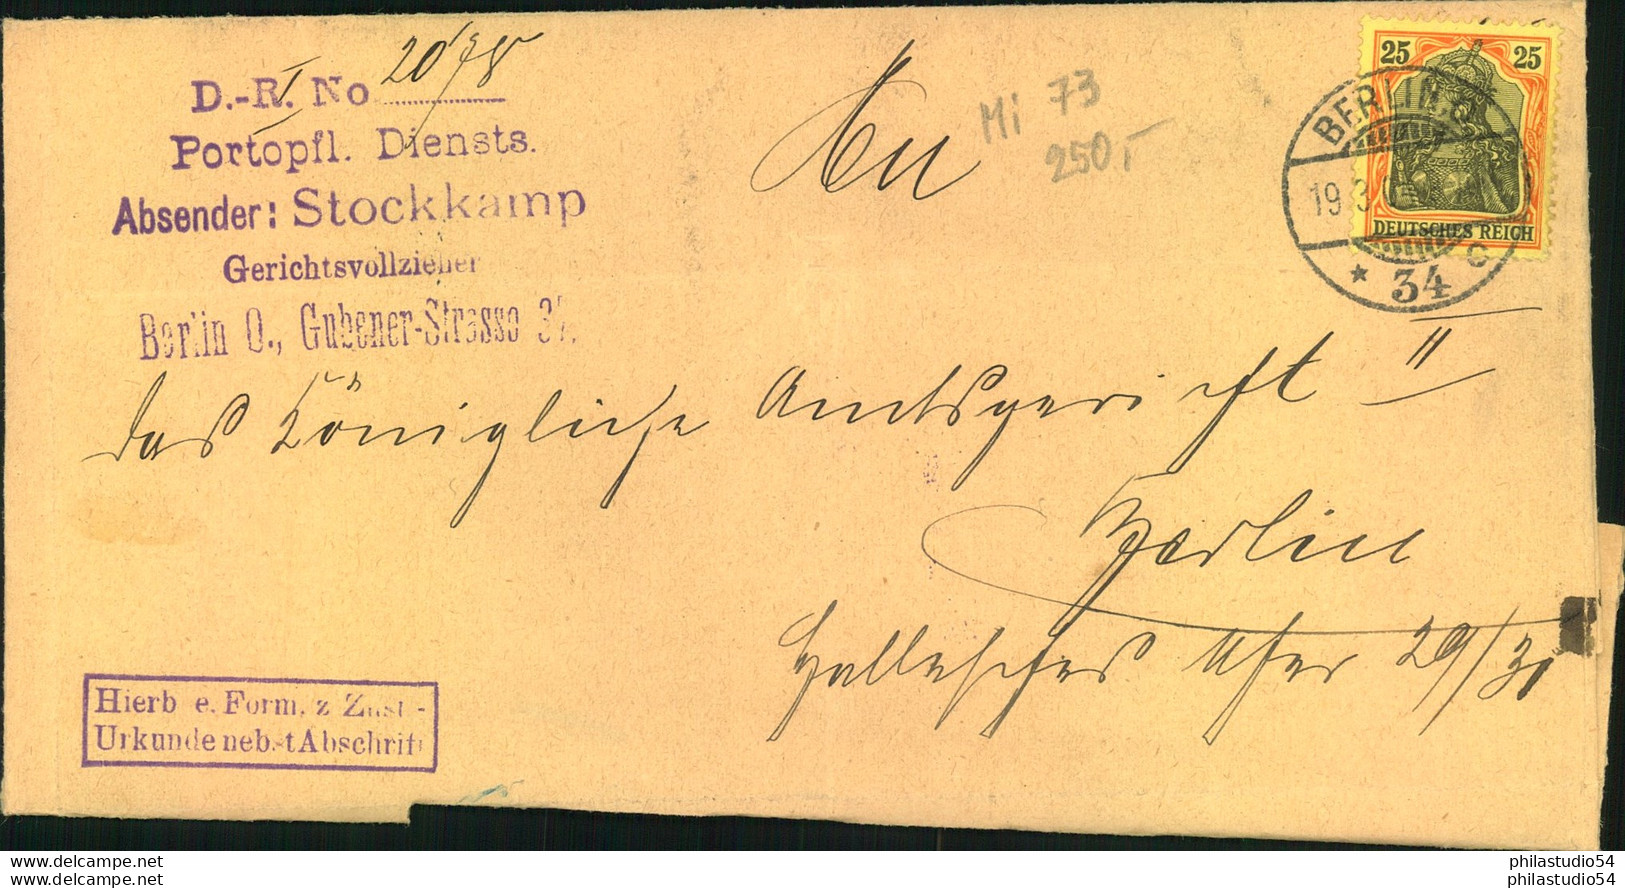 D.-R. No I 2078
Portopfl. Diensts.
Absender: Stockkamp
Gerichtsvollzieher
Berlin O., Gubener-Strasse 37.
An
Mi 73
250,-
25 25
DEUTSCHES REICH
BERLIN
19 3
* 34 c
das Königliche Amtsgericht II
Berlin
Hallesches Ufer 29/31
Hierb e. Form. z Zust.-
Urkunde nebst Abschrift
delcampe.net
delcampe.net
philastudio54
philastudio54